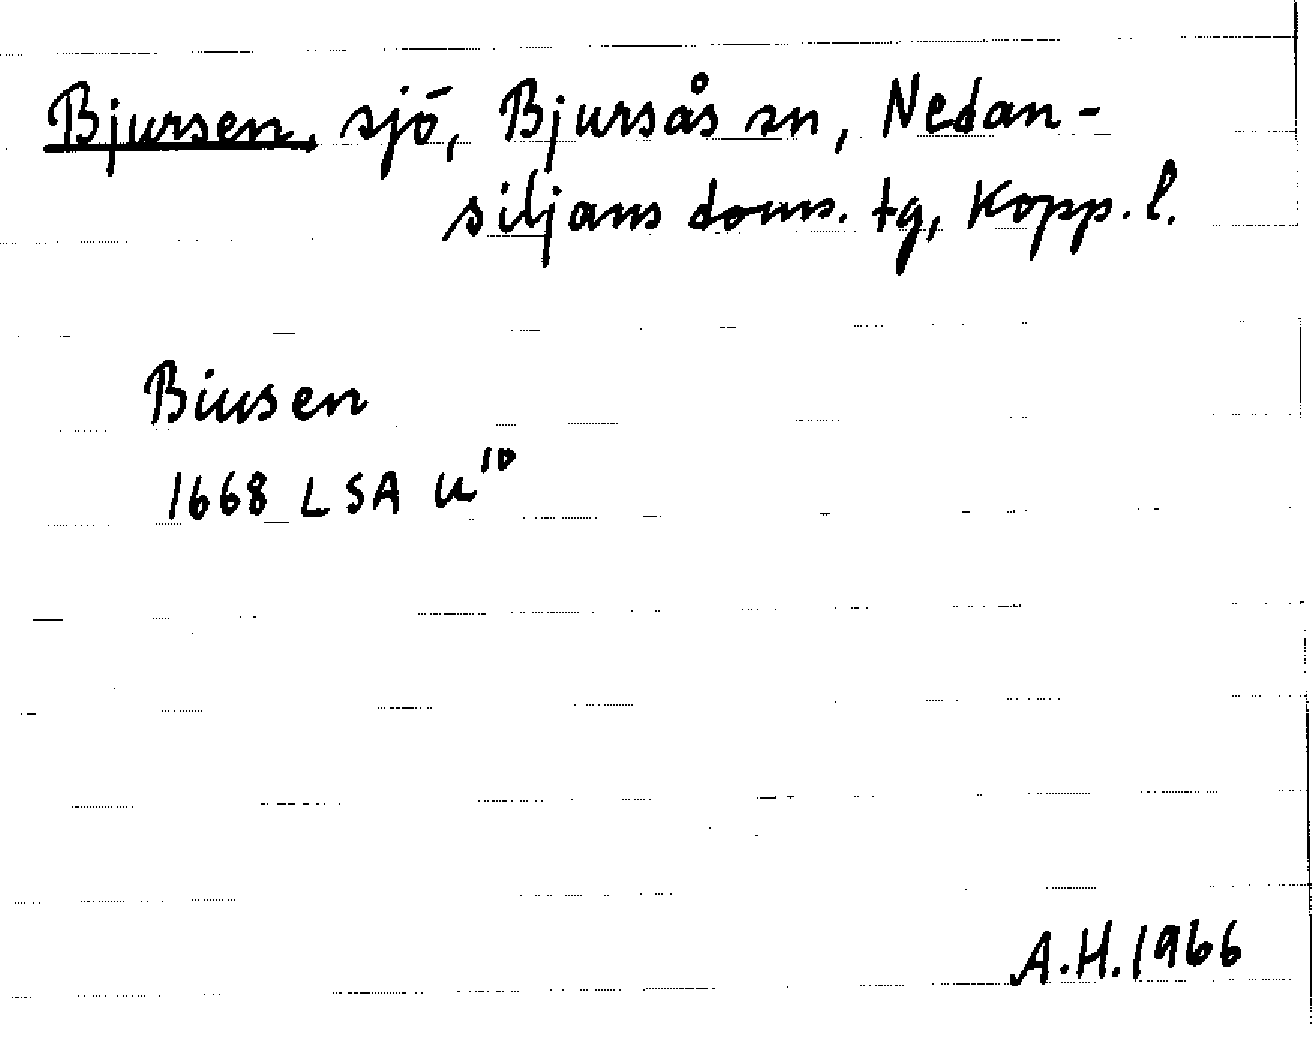 Bjursen, sjö, Bjursås sn, Nedan-
siljans doms. tg, Kopp. l.
Biusen
1668 LSA U¹⁰
A.H. 1966